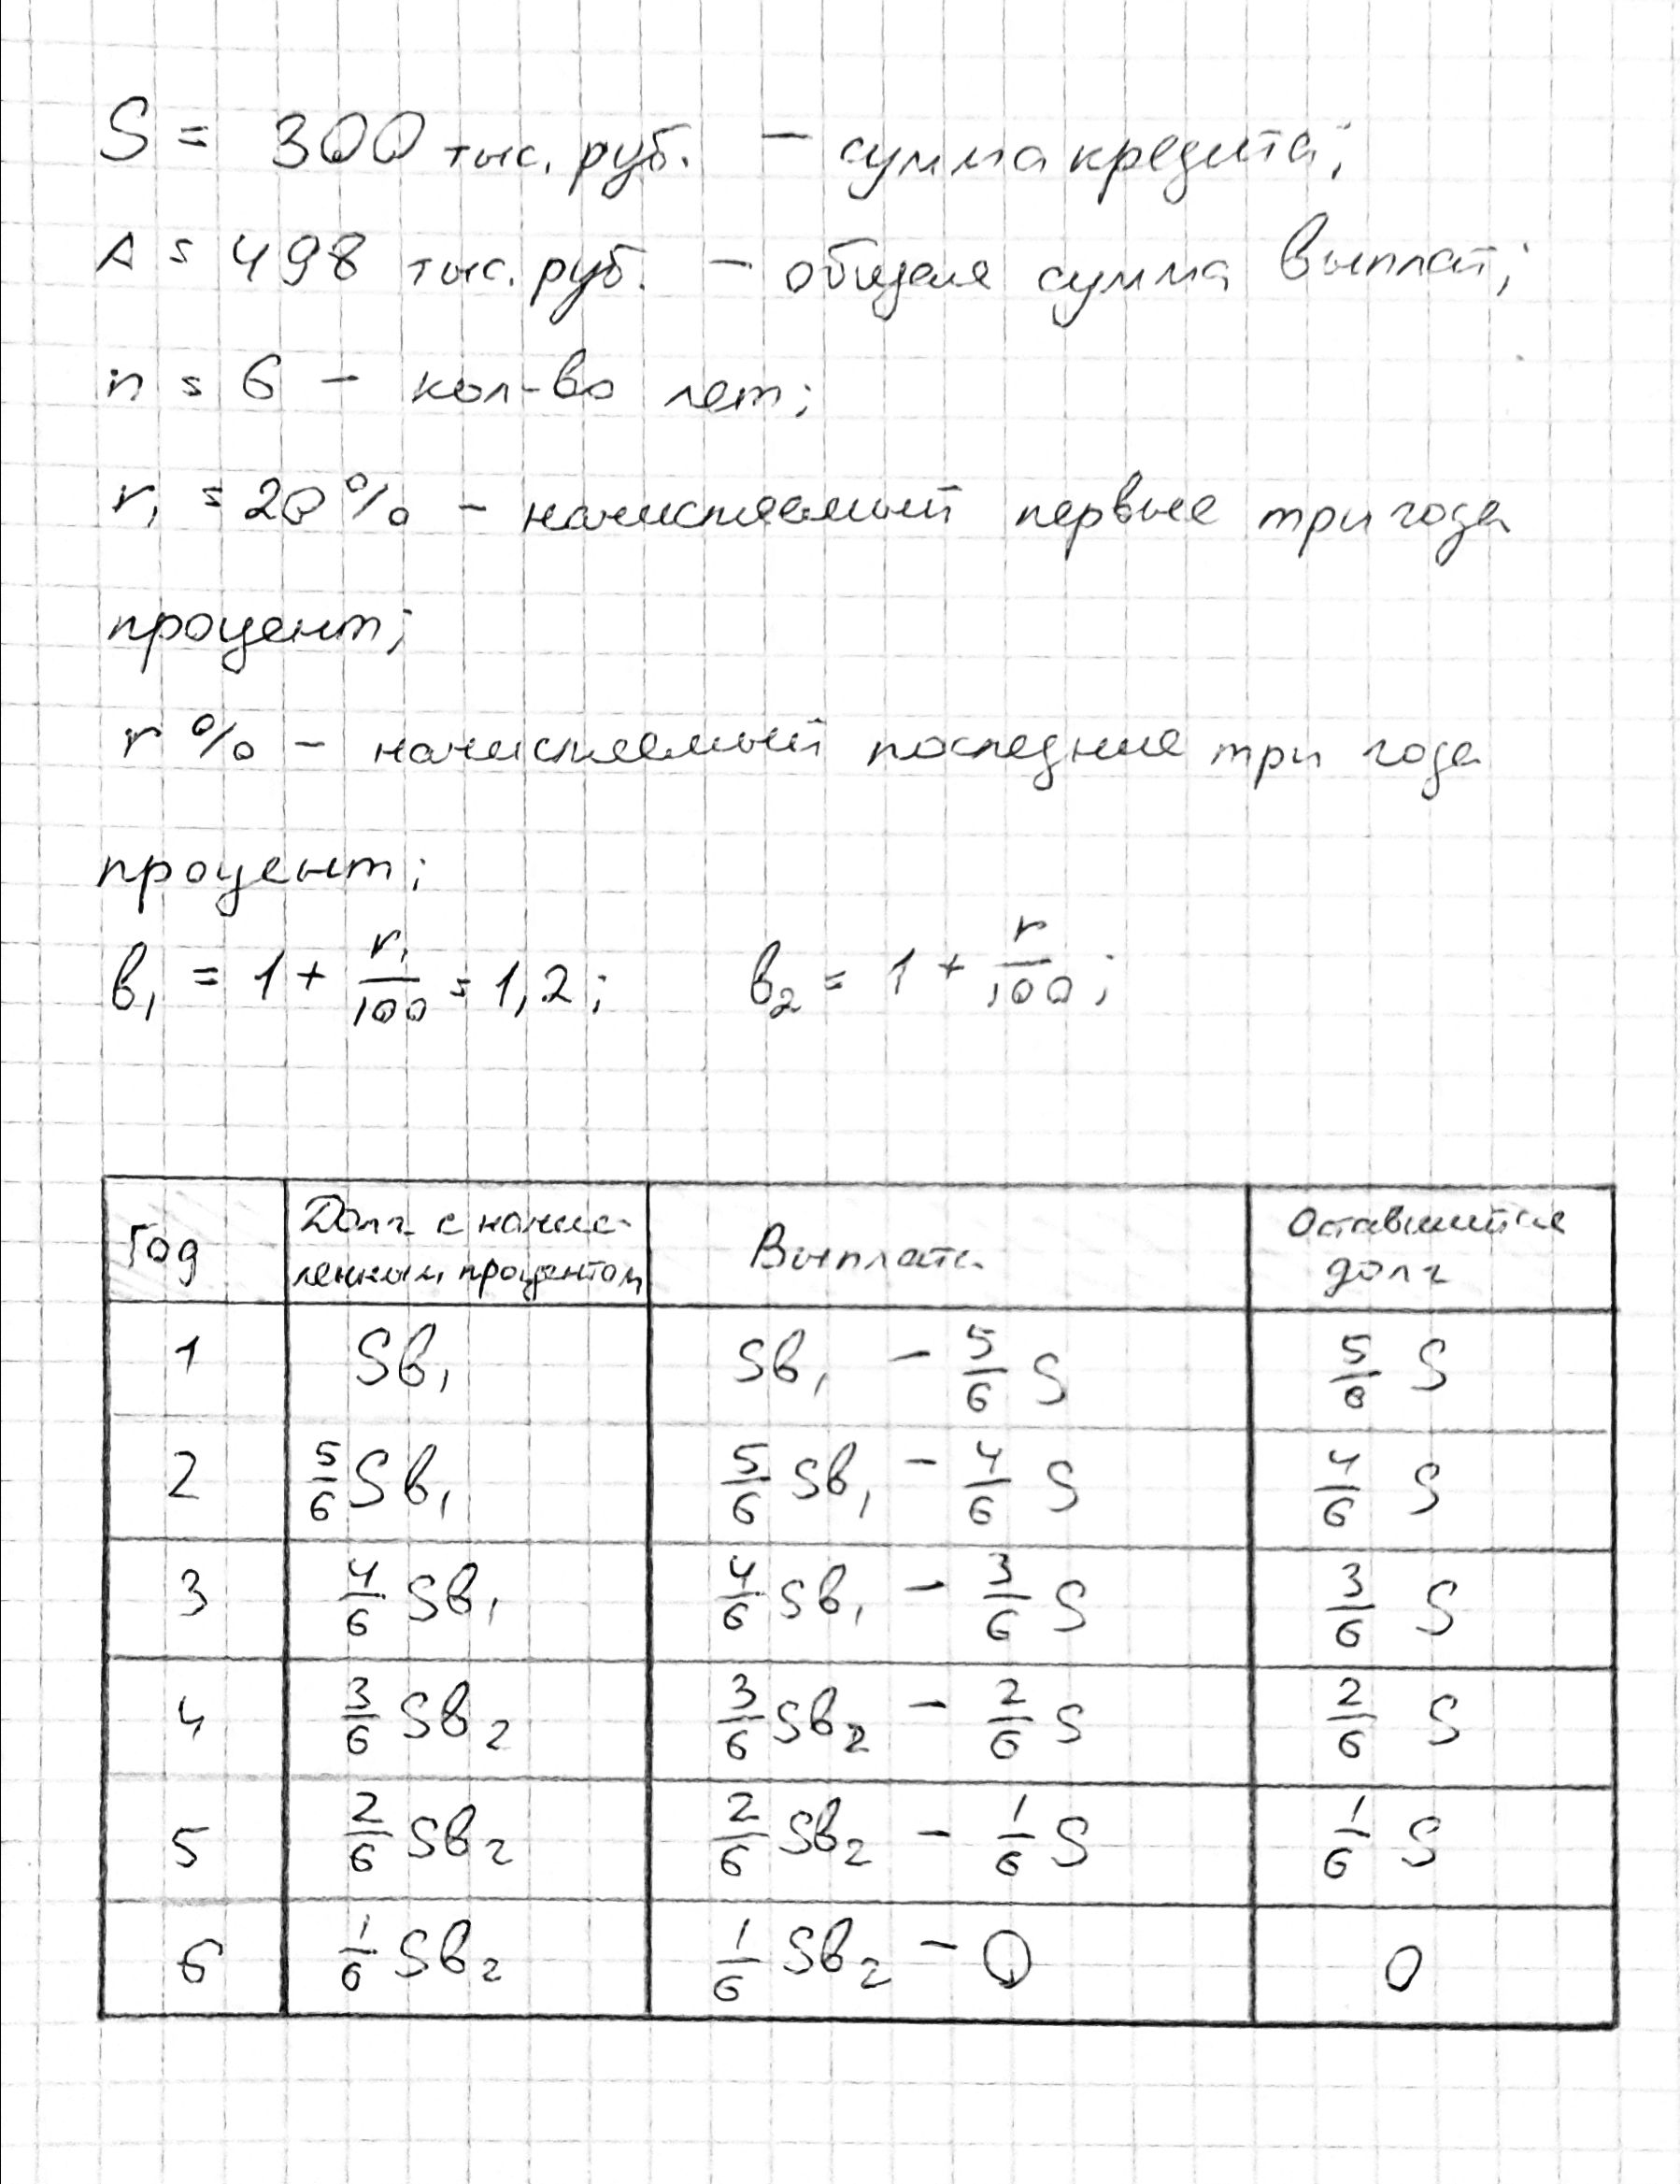 S = 300 тыс. руб. – сумма кредита;
A = 498 тыс. руб. – общая сумма выплат;
n = 6 – кол-во лет;
r₁ = 20% – начисляемый первые три года
процент;
r % – начисляемый последние три года
процент;
b₁ = 1 + r₁/100 = 1,2; b₂ = 1 + r/100;
Год | Долг с начис-ленным процентом | Выплата | Оставшийся долг
1 | Sb₁ | Sb₁ – 5/6 S | 5/6 S
2 | 5/6 Sb₁ | 5/6 Sb₁ – 4/6 S | 4/6 S
3 | 4/6 Sb₁ | 4/6 Sb₁ – 3/6 S | 3/6 S
4 | 3/6 Sb₂ | 3/6 Sb₂ – 2/6 S | 2/6 S
5 | 2/6 Sb₂ | 2/6 Sb₂ – 1/6 S | 1/6 S
6 | 1/6 Sb₂ | 1/6 Sb₂ – 0 | 0